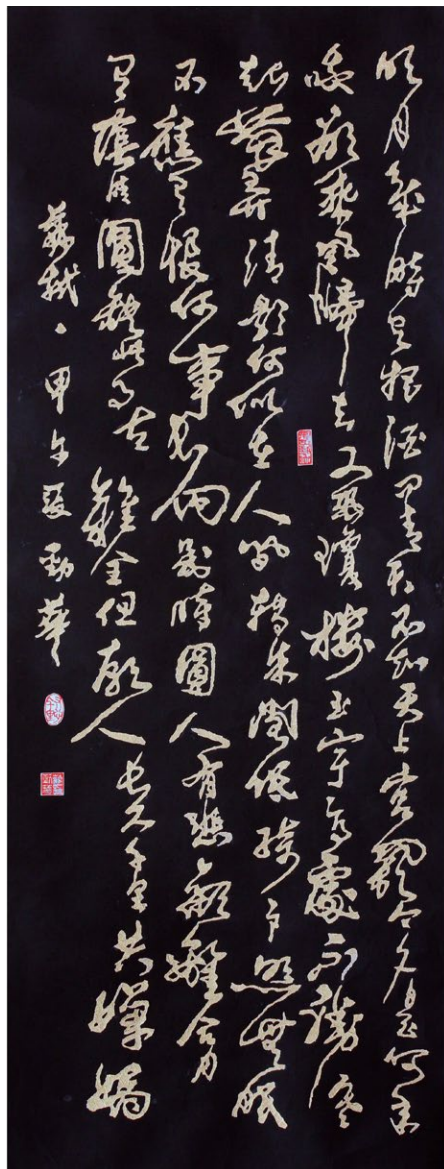 明月幾時有把酒問青天不知天上宮闕今夕是何年
我欲乘風歸去又恐瓊樓玉宇高處不勝寒
起舞弄清影何似在人間轉朱閣低綺戶照無眠
不應有恨何事長向別時圓人有悲歡離合月
有陰晴圓缺此事古難全但願人長久千里共嬋娟
蘇軾。甲午夏勁華